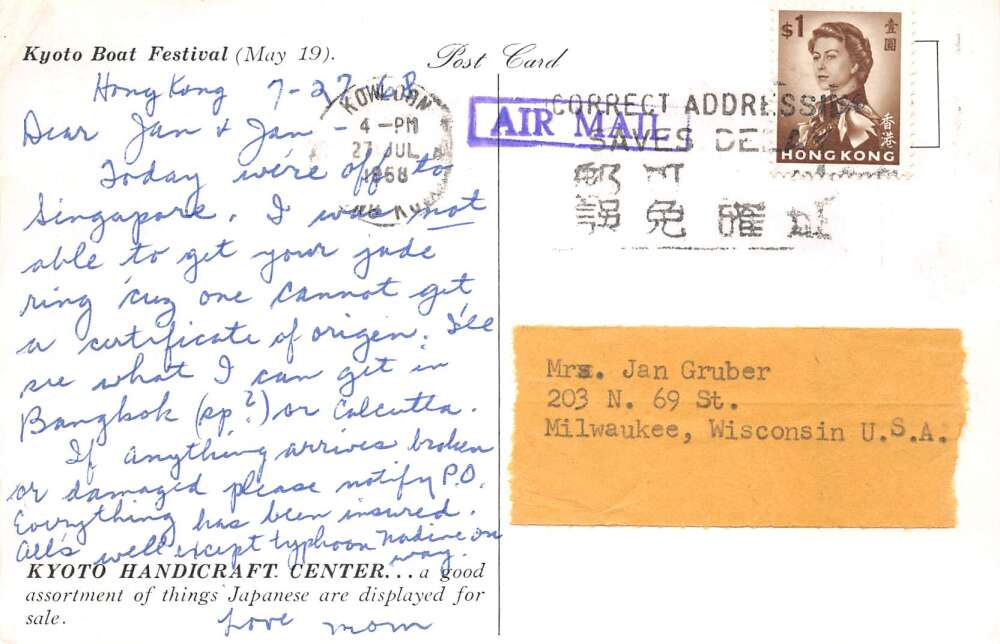 Kyoto Boat Festival (May 19).
Post Card
Hong Kong 7-27-68
Dear Jan & Jan -
Today we're off to
Singapore. I was not
able to get your jade
ring 'cuz one cannot get
a certificate of origin. I'll
see what I can get in
Bangkok (sp?) or Calcutta.
If anything arrives broken
or damaged please notify P.O.
Everything has been insured.
All's well except typhoon Nadine on
way.
KYOTO HANDICRAFT CENTER...a good
assortment of things Japanese are displayed for
sale.
Love mom
KOWLOON
4 -PM
27 JUL
1968
AIR MAIL
CORRECT ADDRESSING
SAVES DELAY
免
確
$1
壹圓
香港
HONG KONG
Mrs. Jan Gruber
203 N. 69 St.
Milwaukee, Wisconsin U.S.A.